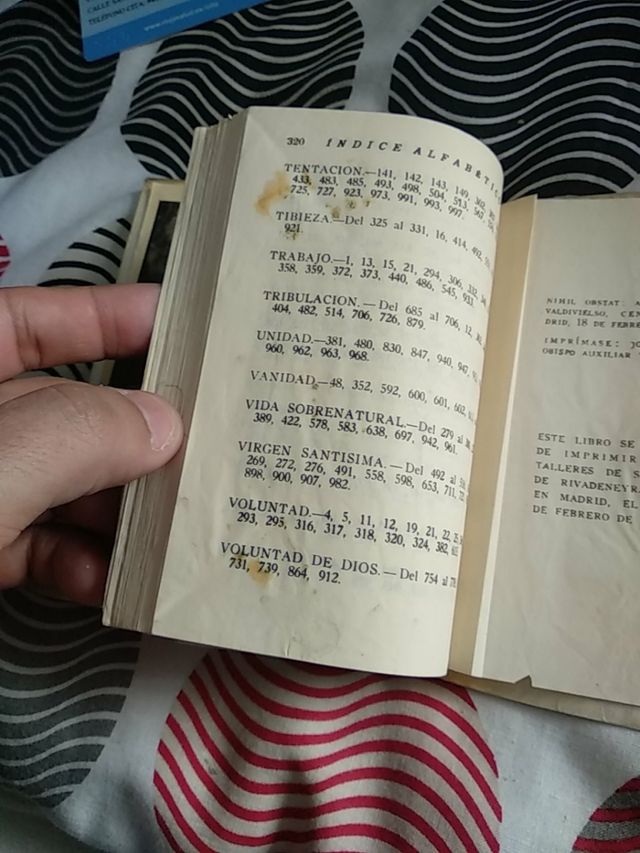 TELÉFONO CITA
320 INDICE ALFABETIC
TENTACION.—141, 142, 143, 149, 302,
433, 483, 485, 493, 498, 504, 513, 567,
725, 727, 923, 973, 991, 993, 997.
TIBIEZA.—Del 325 al 331, 16, 414, 492,
921.
TRABAJO.—1, 13, 15, 21, 294, 306, 332,
358, 359, 372, 373, 440, 486, 545, 933.
TRIBULACION.—Del 685 al 706, 12,
404, 482, 514, 706, 726, 879.
UNIDAD.—381, 480, 830, 847, 940, 947,
960, 962, 963, 968.
VANIDAD.—48, 352, 592, 600, 601, 602,
VIDA SOBRENATURAL.—Del 279 al
389, 422, 578, 583, 638, 697, 942, 961.
VIRGEN SANTISIMA.—Del 492 al
269, 272, 276, 491, 558, 598, 653, 711,
898, 900, 907, 982.
VOLUNTAD.—4, 5, 11, 12, 19, 21, 22,
293, 295, 316, 317, 318, 320, 324, 382,
VOLUNTAD DE DIOS.—Del 754 al
731, 739, 864, 912.
NIHIL OBSTAT:
VALDIVIELSO, CEN
DRID, 18 DE FEBRE
IMPRÍMASE:
OBISPO AUXILIAR
ESTE LIBRO SE
DE IMPRIMIR
TALLERES DE S
DE RIVADENEYR
EN MADRID, EL
DE FEBRERO DE